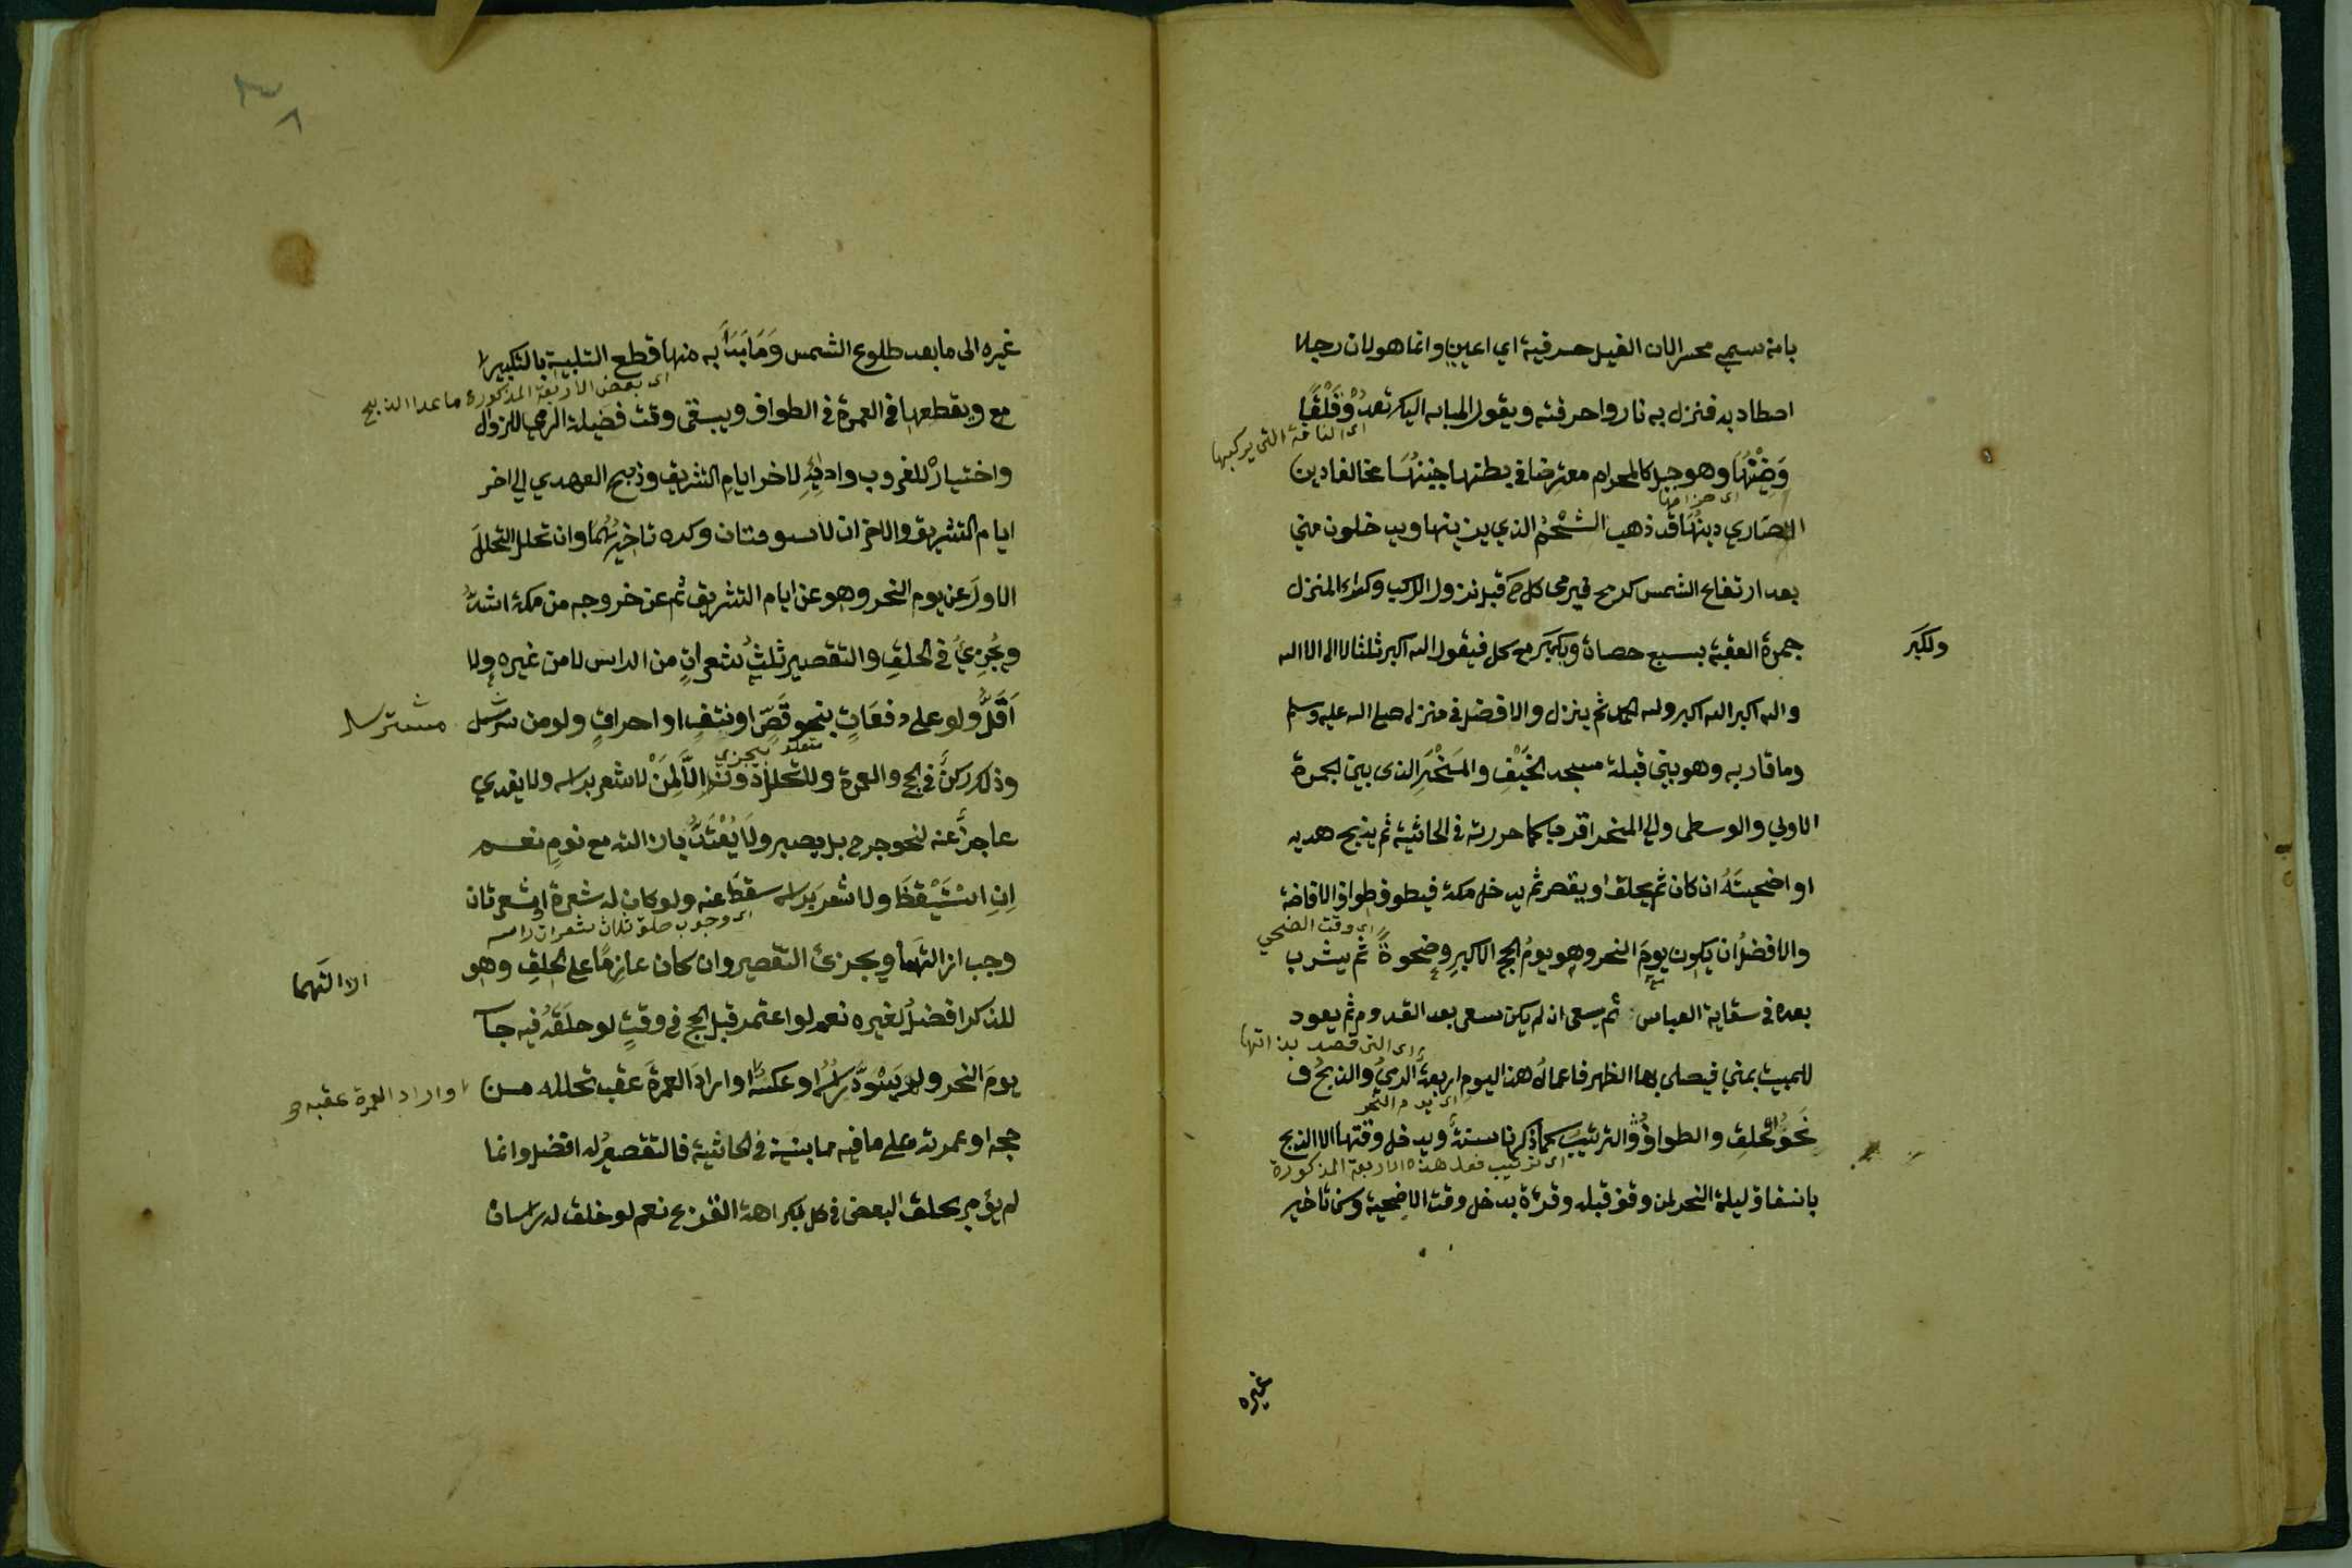 بانه سمي محسرا لان الفيل حسر فيه اي اعيي وانما هو لان رجلا
اصطاد به فنزل به نار واحرقته ويقول المار به اليك تعدو قلقا
اى الناقة التى يركبها
وضينها وهو حبل كالحزام معترضا في بطنها جنينها مخالفا دين
اى حزامها
النصاري دينها قد ذهب الشحم الذي يزينها ويدخلون مني
بعد ارتفاع الشمس كرمح فيرمى كل ح قبل نزول الركب وكراء المنزل
جمرة العقبة بسبع حصات ويكبر مع كل فيقول الله اكبر ثلثا لا اله الا الله
ولكبر
والله اكبر الله اكبر ولله الحمد ثم ينزل والافضل في منزله صلى الله عليه وسلم
وما قاربه وهو بين قبلة مسجد الخيف والمنحر الذى بين الجمرة
الاولي والوسطى والى المنحر اقرب كما حررته في الحاشية ثم يذبح هديه
او اضحيته ان كان ثم يحلق او يقصر ثم يدخل مكة فيطوف طواف الافاضة
والافضل ان يكون يوم النحر وهو يوم الحج الاكبر وضحوة ثم يشرب
اى وقت الضحي
بعده في سقاية العباس ثم يسعى ان لم يكن سعى بعد القدوم ثم يعود
للمبيت بمني فيصلي بها الظهر فاعمال هذا اليوم اربعة الرمي والذبح و
اى التى قصد بذاتها
نحو الحلق والطواف والترتيب كما ذكرنا سنة ويدخل وقتها الا الذبح
اى يوم النحر
بانتصاف ليلة النحر لمن وقف قبله وقرة يدخل وقت الاضحية وسن تاخير
اى ترتيب فعل هذه الاربعة المذكورة
غيره
غيره الى ما بعد طلوع الشمس وما بدأ به منها قطع التلبية بالتكبير
مع ويقطعها في العمرة في الطواف ويبقى وقت فضيلة الرمي للزوال
اى بعض الاربعة المذكورة ما عدا الذبح
واختيار للغروب وادائه لاخر ايام التشريق وذبح الهدي الي اخر
ايام التشريق والاخران لا يوقتان وكره تاخيرهما وان تحلل التحلل
الاول عن يوم النحر وهو عن ايام التشريق ثم عن خروجه من مكة اشد
ويجزئ في الحلق والتقصير ثلث شعرات من الراس لا من غيره ولا
اقل ولو على دفعات بنحو قص او نتف او احراق ولو من مسترسل
مسترسل
وذلك ركن في الحج والعمرة وللتحلل دونه الا لمن لا شعر براسه ولا يفدي
متعلق بيجزي
عاجز عنه لنحو جرح بل يصبر ولا يعتد بازالته مع نوم نعم
ان استيقظ ولا شعر براسه سقط عنه ولو كان له شعرة او شعرتان
وجب ازالتهما ويجزئ التقصير وان كان عازما على الحلق وهو
اى وجوب حلق ثلاث شعرات راسه
الا التهما
للذكر افضل لغيره نعم لو اعتمر قبل الحج في وقت لو حلقه فيه جا
يوم النحر ولم يسود راسه او عكسه او اراد العمرة عقب تحلله من
او اراد العمرة عقبه
حجه او عمرته على ما فيه مما بينته في الحاشية فالتقصير له افضل وانما
لم يؤمر بحلق البعض في كل لكراهة القزع نعم لو خلق له راسان